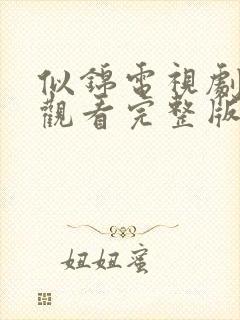 似錦電視劇
觀看完整版
妞妞蜜